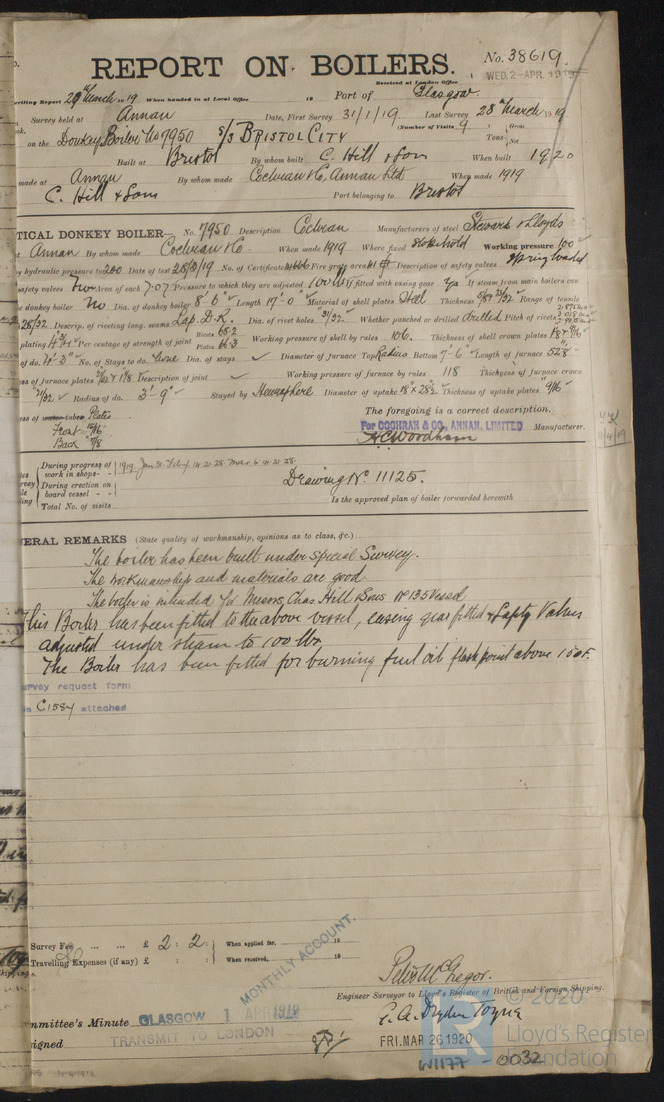 REPORT ON BOILERS. No. 38619.
Received at London Office WED. 2-APR. 1919
Writing Report 29th March 1919 When handed in at Local Office 19 Port of Glasgow.
Survey held at Annan Date, First Survey 31/1/19 Last Survey 28th March 1919
on the Donkey Boiler No 7950 S/S BRISTOL CITY (Number of Visits 9 Tons Gross Net
Built at Bristol By whom built C. Hill & Son When built 1920
made at Annan By whom made Cochran & Co, Annan Ltd When made 1919
C. Hill & Sons Port belonging to Bristol
TICAL DONKEY BOILER— No. 7950 Description Cochran Manufacturers of steel Stewarts & Lloyds
at Annan By whom made Cochran & Co When made 1919 Where fixed Stokehold Working pressure 100
by hydraulic pressure to 200 Date of test 28/3/19 No. of Certificate Fire grate area Description of safety valves Spring loaded
safety valves Two Area of each 7.07 Pressure to which they are adjusted 100 lbs If fitted with easing gear Yes If steam from main boilers can
donkey boiler No Dia. of donkey boiler 8'6" Length 17'0" Material of shell plates Steel Thickness Range of tensile
28/32 Descrip. of riveting long. seams Lap. D.R. Dia. of rivet holes 31/32" Whether punched or drilled drilled Pitch of rivets
plating Per centage of strength of joint Rivets 68.2 Plates 66.3 Working pressure of shell by rules 106. Thickness of shell crown plates
of do. No. of Stays to do. None Dia. of stays Diameter of furnace Top Radius Bottom 7-6" Length of furnace
ss of furnace plates Description of joint Working pressure of furnace by rules 118 Thickness of furnace crown
21/32 Radius of do. 3'-9" Stayed by Hemisphere Diameter of uptake Thickness of uptake plates 9/16"
ss of water tubes Plates
Front 15/16
Back 7/8
The foregoing is a correct description,
For COCHRAN & CO., ANNAN, LIMITED Manufacturer.
H.C. Woodham
During progress of work in shops - - 1919. Jan 31. Feb 7. 14. 21. 28. Mar. 6. 14. 21. 28.
During erection on board vessel - - -
Total No. of visits
Drawing No. 11125.
Is the approved plan of boiler forwarded herewith
ERAL REMARKS (State quality of workmanship, opinions as to class, &c.)
The boiler has been built under Special Survey.
The workmanship and materials are good.
The boiler is intended for Messrs Chas Hill & Sons No 135 Vessel
This Boiler has been fitted to the above vessel, easing gear fitted & Safety Valves
adjusted under steam to 100 lbs.
The Boiler has been fitted for burning fuel oil flash point above 150°F.
rvey request form
C1584 attached
Survey Fee ... ... £ 2 : 2 : When applied for, 19
Travelling Expenses (if any) £ : : When received, 19
MONTHLY ACCOUNT.
Peter McGregor.
Engineer Surveyor to Lloyd's Register of British and Foreign Shipping.
mmittee's Minute GLASGOW 1 APR 1919
signed TRANSMIT TO LONDON
FRI. MAR 26 1920
© 2020
Lloyd's Register
Foundation
W1177 - 0032